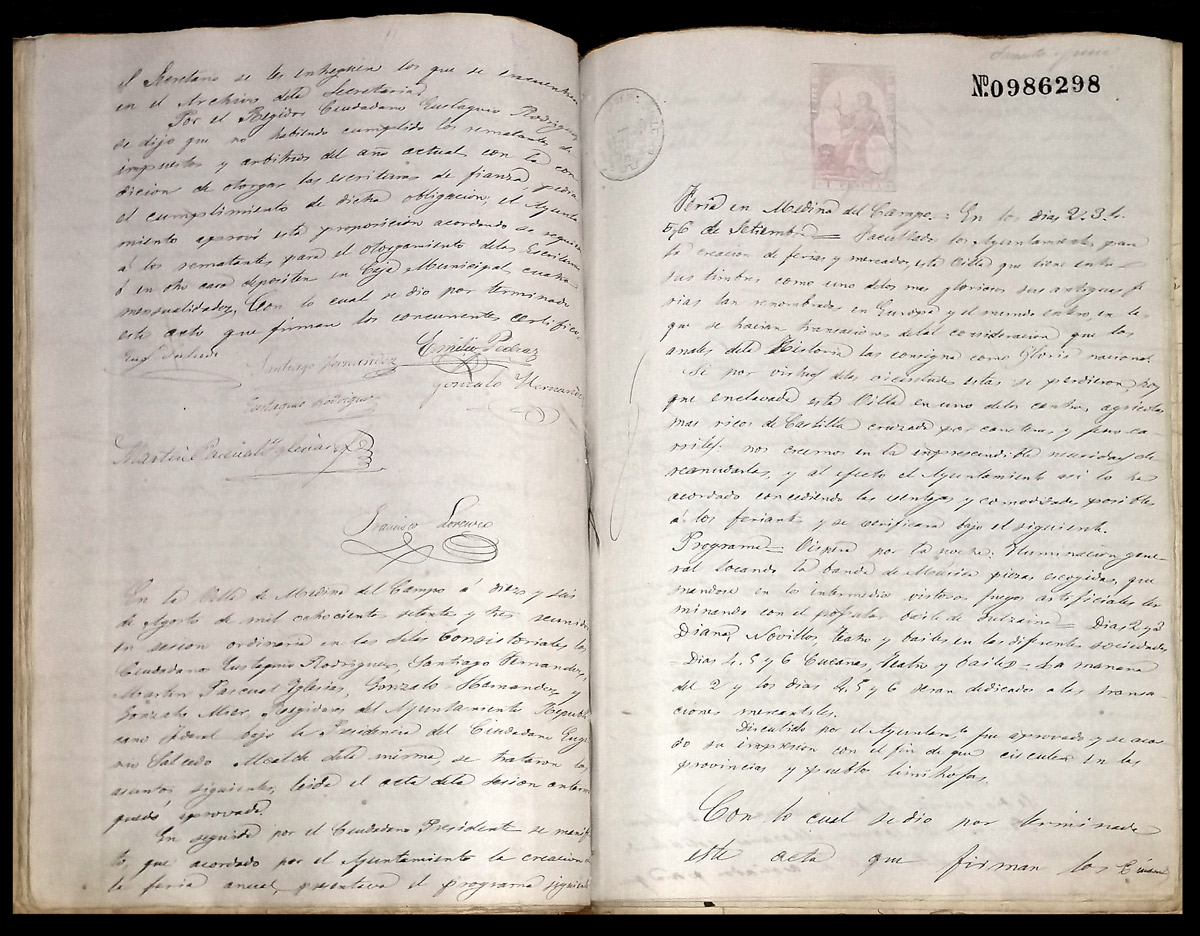 el Secretario se les entreguen los que se encuentran
en el Archivo dela Secretaria.
Por el Regidor Ciudadano Eustaquio Rodriguez
se dijo que no habiendo cumplido los rematantes de
impuestos y arbitrios del año actual con la con
dicion de otorgar las escrituras de fianza pedia
el cumplimiento de dicha obligacion, el Ayunta
miento aprovó esta proposicion acordando se requiera
á los rematantes para el otorgamiento delas Escrituras
ó en otro caso depositen en Caja Municipal cuatro
mensualidades, Con lo cual se dio por terminado
este acto que firman los concurrentes certifico.
Eugº Salcedo
Santiago Fernandez
Emilio Pedraz
Eustaquio Rodriguez
Gonzalo Hernandez
Martin Pascual Yglesias
Francisco Lorenzo
En la Villa de Medina del Campo á diez y seis
de Agosto de mil ochocientos setenta y tres reunidos
en sesion ordinaria en las Salas Consistoriales los
Ciudadanos Eustaquio Rodriguez, Santiago Fernandez,
Martin Pascual Yglesias, Gonzalo Hernandez y
Gonzalo Regidores del Ayuntamiento Republi
cano federal bajo la Presidencia del Ciudadano Euge
nio Salcedo Alcalde dela misma, se trataron los
asuntos siguientes, leida el acta dela sesion anterior
quedó aprovada.
En seguida por el Ciudadano Presidente se manifes
tó, que acordado por el Ayuntamiento la creacion de
la feria anual, presentava el programa siguiente
Nº 0986298
Feria en Medina del Campo.= En los dias 2. 3. 4.
5 y 6 de Setiembre= Facultados los Ayuntamientos para
la creacion de ferias y mercados, esta Villa que tiene entre
sus timbres como uno delos mas gloriosos sus antiguas fe
rias tan renombradas en Europa y el mundo entero, en las
que se hacian transaciones de tal consideracion que los
anales dela Historia las consigna como Gloria nacional.
Si por virtud delas vicisitudes estas se perdieron, hoy
que enclavada esta Villa en uno delos centros agricolas
mas ricos de Castilla cruzada por carreteras y ferro-ca-
rriles. nos creemos en la imprescindible necesidad de
reanudarlas, y al efecto el Ayuntamiento asi lo ha
acordado concediendo las ventajas y comodidades posibles
á los feriantes y se verificara bajo el siguiente.
Programa= Vispera por la noche. Yluminacion gene-
ral tocando la banda de Musica piezas escogidas, que
mandose en los intermedios vistosos fuegos artificiales ter
minando con el popular baile de Dulzaina= Dias 2 y 3
Diana, Novillos, Teatro y bailes en las diferentes sociedades
-Dias 4. 5 y 6 Cucanas, Teatro y bailes- La manana
del 2 y los dias 4, 5 y 6 seran dedicados a las transa-
ciones mercantiles.
Discutido por el Ayuntamto fue aprovado y se acor-
dó su impresion con el fin de que circulen en las
provincias y pueblos limitrofes.
Con lo cual se dio por terminada
este acta que firman los Ciudad